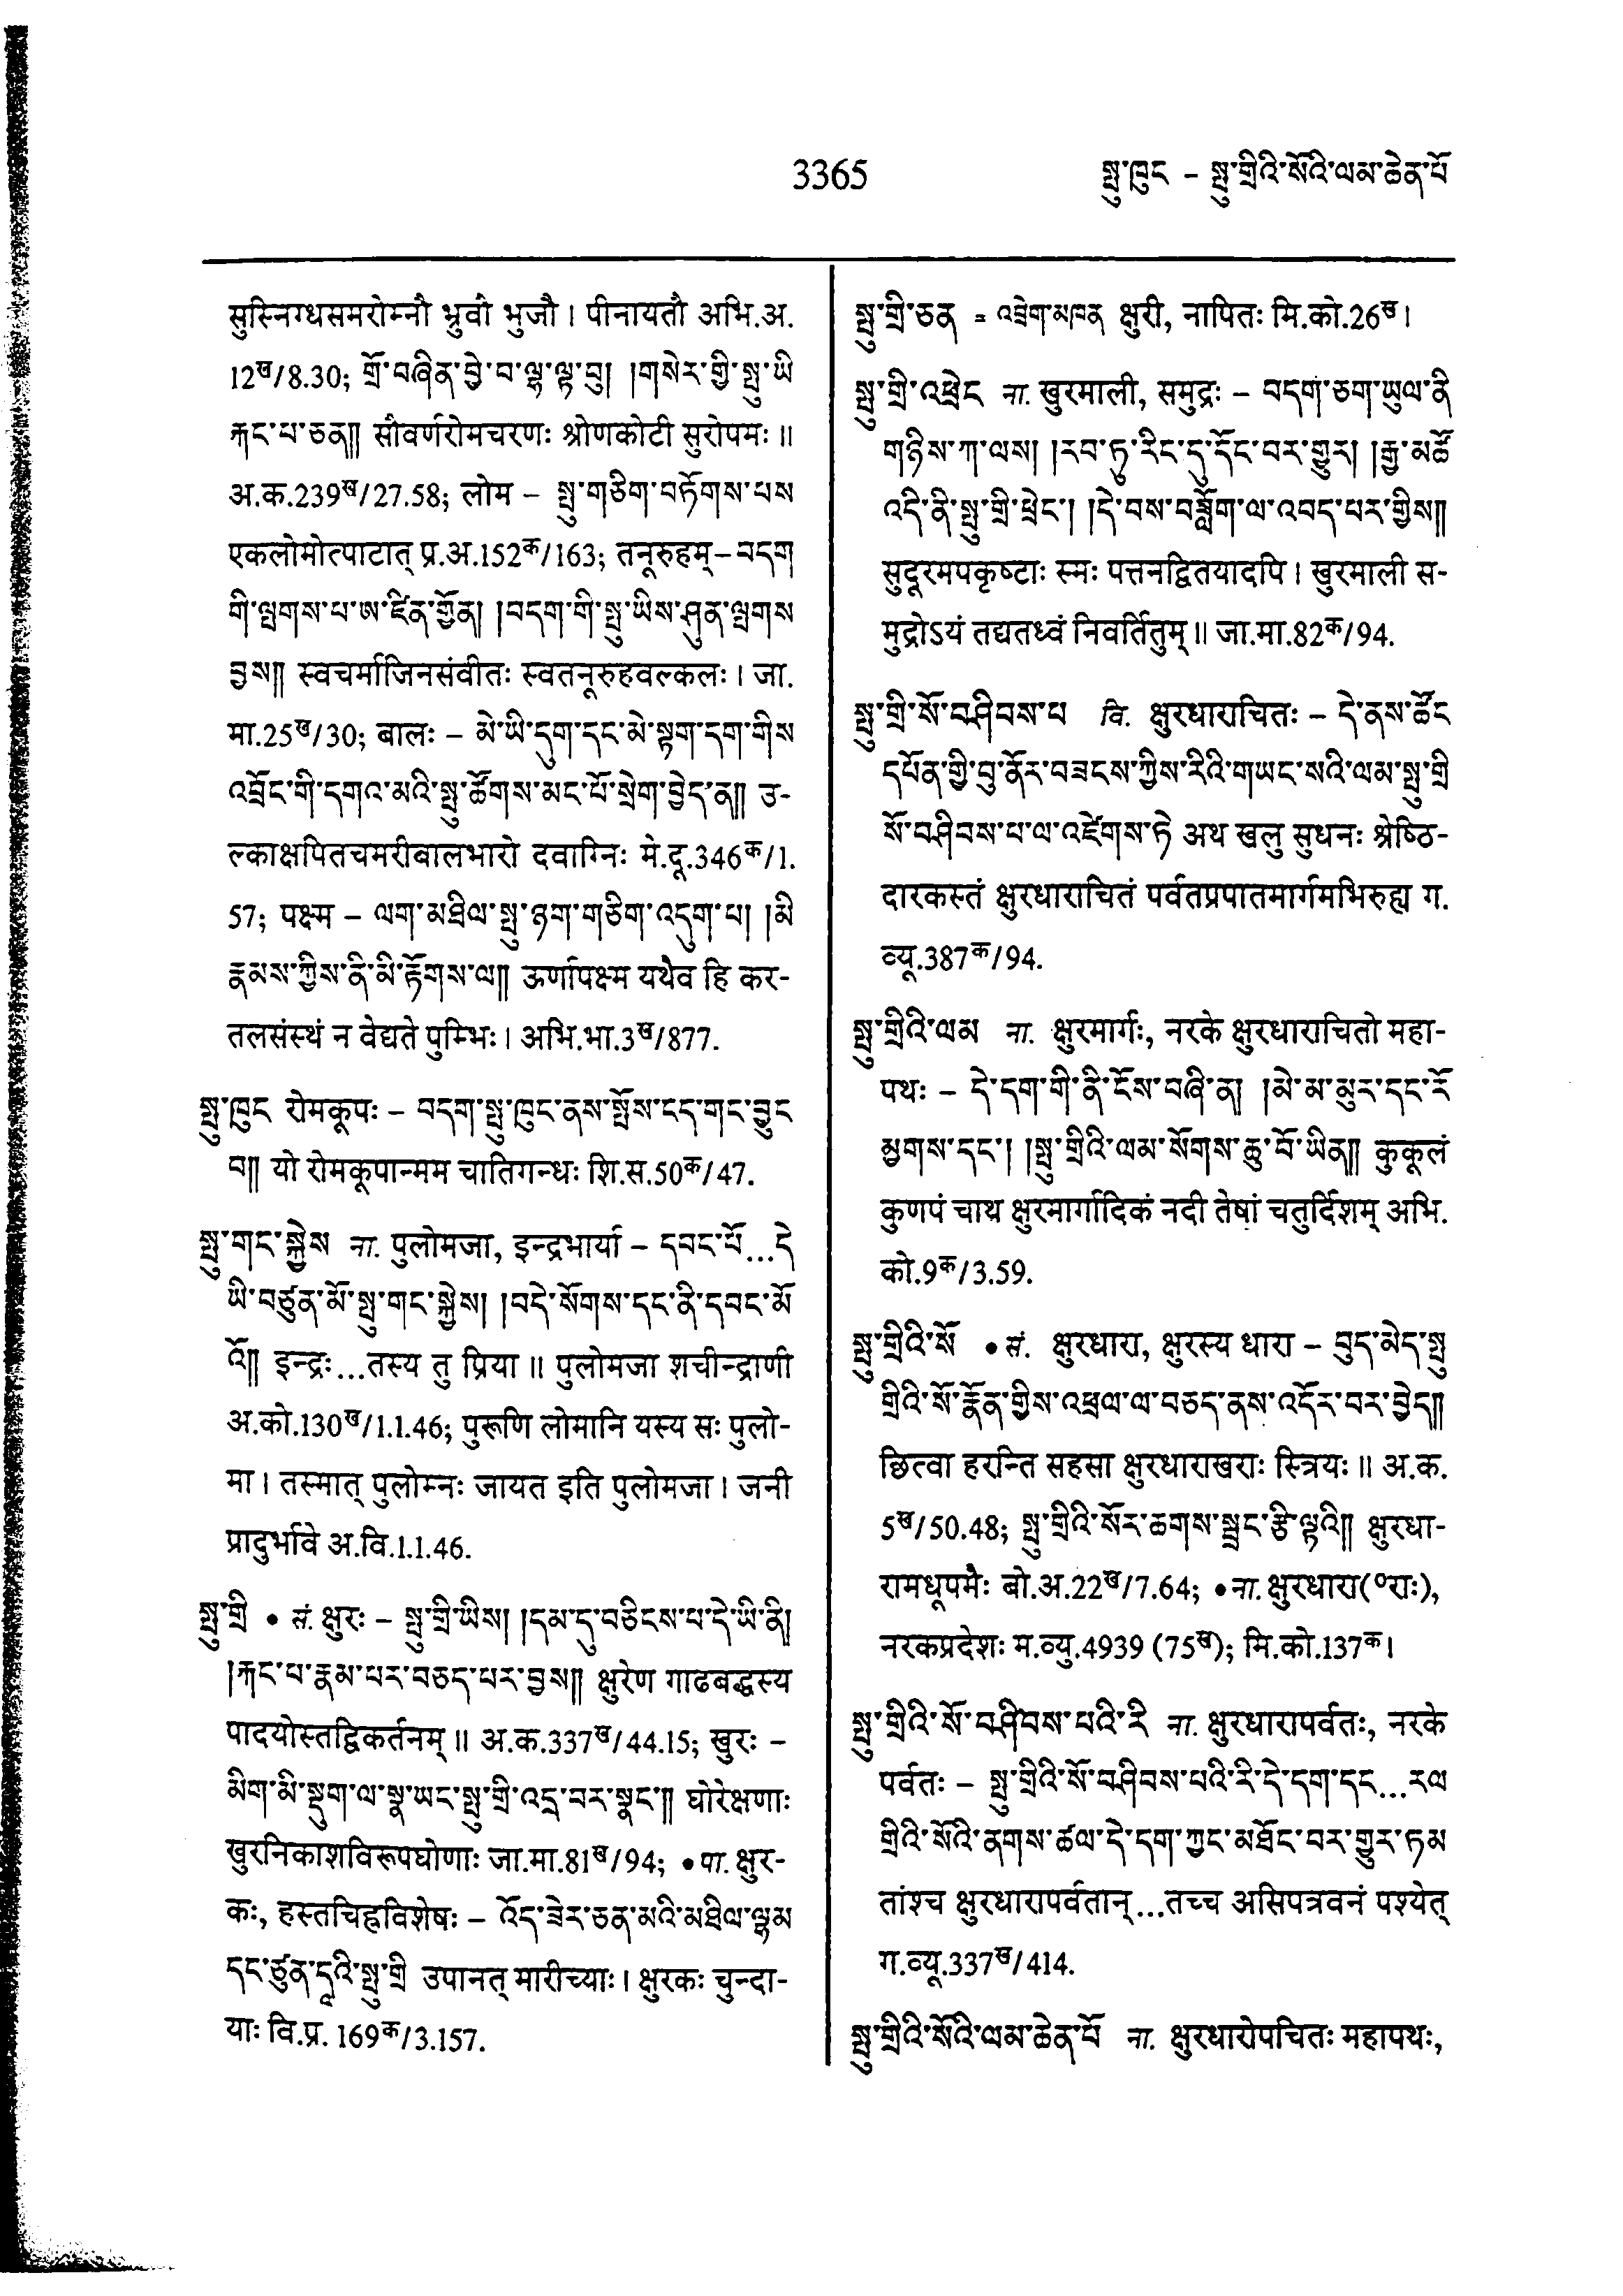 3365
སྤུ་ཁུང – སྤུ་གྲིའི་སོའི་ལམ་ཆེན་པོ
सुस्निग्धसमरोम्नौ भ्रुवौ भुजौ । पीनायतौ अभि.अ.
12ख/8.30; གྲོ་བཞིན་བྱེ་བ་ལྷ་ལྟ་བུ། །གསེར་གྱི་སྤུ་ཡི
རྐང་པ་ཅན༎ सौवर्णरोमचरणः श्रोणकोटी सुरोपमः ॥
अ.क.239ख/27.58; लोम – སྤུ་གཅིག་བཏོགས་པས
एकलोमोत्पाटात् प्र.अ.152क/163; तनूरुहम् – བདག
གི་ལྤགས་པ་ཨ་ཛིན་གྱོན། །བདག་གི་སྤུ་ཡིས་ཤུན་ལྤགས
བྱས༎ स्वचर्माजिनसंवीतः स्वतनूरुहवल्कलः । जा.
मा.25ख/30; बालः – མེ་ཡི་དུག་དང་མེ་སྟག་དག་གིས
འབྲོང་གི་དགའ་མའི་སྤུ་ཚོགས་མང་པོ་སྲེག་བྱེད་ན༎ उ-
ल्काक्षपितचमरीबालभारो दवाग्निः मे.दू.346क/1.
57; पक्ष्म – ལག་མཐིལ་སྤུ་ཉག་གཅིག་འདུག་པ། །མི
རྣམས་ཀྱིས་ནི་མི་རྟོགས་ལ༎ ऊर्णापक्ष्म यथैव हि कर-
तलसंस्थं न वेद्यते पुम्भिः । अभि.भा.3ख/877.
སྤུ་ཁུང रोमकूपः – བདག་སྤུ་ཁུང་ནས་སྤོས་ངད་གང་བྱུང
བ༎ यो रोमकूपान्मम चातिगन्धः शि.स.50क/47.
སྤུ་གང་སྐྱེས ना. पुलोमजा, इन्द्रभार्या – དབང་པོ...དེ
ཡི་བཙུན་མོ་སྤུ་གང་སྐྱེས། །བདེ་སོགས་དང་ནི་དབང་མོ
འོ༎ इन्द्रः...तस्य तु प्रिया ॥ पुलोमजा शचीन्द्राणी
अ.को.130ख/1.1.46; पुरूणि लोमानि यस्य सः पुलो-
मा । तस्मात् पुलोम्नः जायत इति पुलोमजा । जनी
प्रादुर्भावे अ.वि.1.1.46.
སྤུ་གྲི • सं. क्षुरः – སྤུ་གྲི་ཡིས། །དམ་དུ་བཅིངས་པ་དེ་ཡི་ནི།
།རྐང་པ་རྣམ་པར་བཅད་པར་བྱས༎ क्षुरेण गाढबद्धस्य
पादयोस्तद्विकर्तनम् ॥ अ.क.337ख/44.15; खुरः –
མིག་མི་སྡུག་ལ་སྣ་ཡང་སྤུ་གྲི་འདྲ་བར་སྣང་༎ घोरेक्षणाः
खुरनिकाशविरूपघोणाः जा.मा.81ख/94; • पा. क्षुर-
कः, हस्तचिह्नविशेषः – འོད་ཟེར་ཅན་མའི་མཐིལ་ལྷམ
དང་ཙུན་དཱའི་སྤུ་གྲི उपानत् मारीच्याः । क्षुरकः चुन्दा-
याः वि.प्र. 169क/3.157.
སྤུ་གྲི་ཅན = འབྲེག་མཁན क्षुरी, नापितः मि.को.26ख ।
སྤུ་གྲི་འཕྲེང ना. खुरमाली, समुद्रः – བདག་ཅག་ཡུལ་ནི
གཉིས་ཀ་ལས། །རབ་ཏུ་རིང་དུ་དོང་བར་གྱུར། །རྒྱ་མཚོ
འདི་ནི་སྤུ་གྲི་ཕྲེང་། །དེ་བས་བཟློག་ལ་འབད་པར་གྱིས༎
सुदूरमपकृष्टाः स्मः पत्तनद्वितयादपि । खुरमाली स-
मुद्रोऽयं तद्यतध्वं निवर्तितुम् ॥ जा.मा.82क/94.
སྤུ་གྲི་སོ་བཤིབས་པ वि. क्षुरधाराचितः – དེ་ནས་ཚོང
དཔོན་གྱི་བུ་ནོར་བཟངས་ཀྱིས་རིའི་གཡང་སའི་ལམ་སྤུ་གྲི
སོ་བཤིབས་པ་ལ་འཛེགས་ཏེ अथ खलु सुधनः श्रेष्ठि-
दारकस्तं क्षुरधाराचितं पर्वतप्रपातमार्गमभिरुह्य ग.
व्यू.387क/94.
སྤུ་གྲིའི་ལམ ना. क्षुरमार्गः, नरके क्षुरधाराचितो महा-
पथः – དེ་དག་གི་ནི་ངོས་བཞི་ན། །མེ་མ་མུར་དང་རོ
མྱགས་དང་། །སྤུ་གྲིའི་ལམ་སོགས་ཆུ་བོ་ཡིན༎ कुकूलं
कुणपं चाथ क्षुरमार्गादिकं नदी तेषां चतुर्दिशम् अभि.
को.9क/3.59.
སྤུ་གྲིའི་སོ • सं. क्षुरधारा, क्षुरस्य धारा – བུད་མེད་སྤུ
གྲིའི་སོ་རྣོན་གྱིས་འཕྲལ་ལ་བཅད་ནས་འདོར་བར་བྱེད༎
छित्वा हरन्ति सहसा क्षुरधाराखराः स्त्रियः ॥ अ.क.
5ख/50.48; སྤུ་གྲིའི་སོར་ཆགས་སྦྲང་རྩི་ལྟའི༎ क्षुरधा-
रामधूपमैः बो.अ.22ख/7.64; • ना. क्षुरधारा(०राः),
नरकप्रदेशः म.व्यु.4939 (75ख); मि.को.137क ।
སྤུ་གྲིའི་སོ་བཤིབས་པའི་རི ना. क्षुरधारापर्वतः, नरके
पर्वतः – སྤུ་གྲིའི་སོ་བཤིབས་པའི་རི་དེ་དག་དང...རལ
གྲིའི་སོའི་ནགས་ཚལ་དེ་དག་ཀྱང་མཐོང་བར་གྱུར་ཏམ
तांश्च क्षुरधारापर्वतान्...तच्च असिपत्रवनं पश्येत्
ग.व्यू.337ख/414.
སྤུ་གྲིའི་སོའི་ལམ་ཆེན་པོ ना. क्षुरधारोपचितः महापथः,